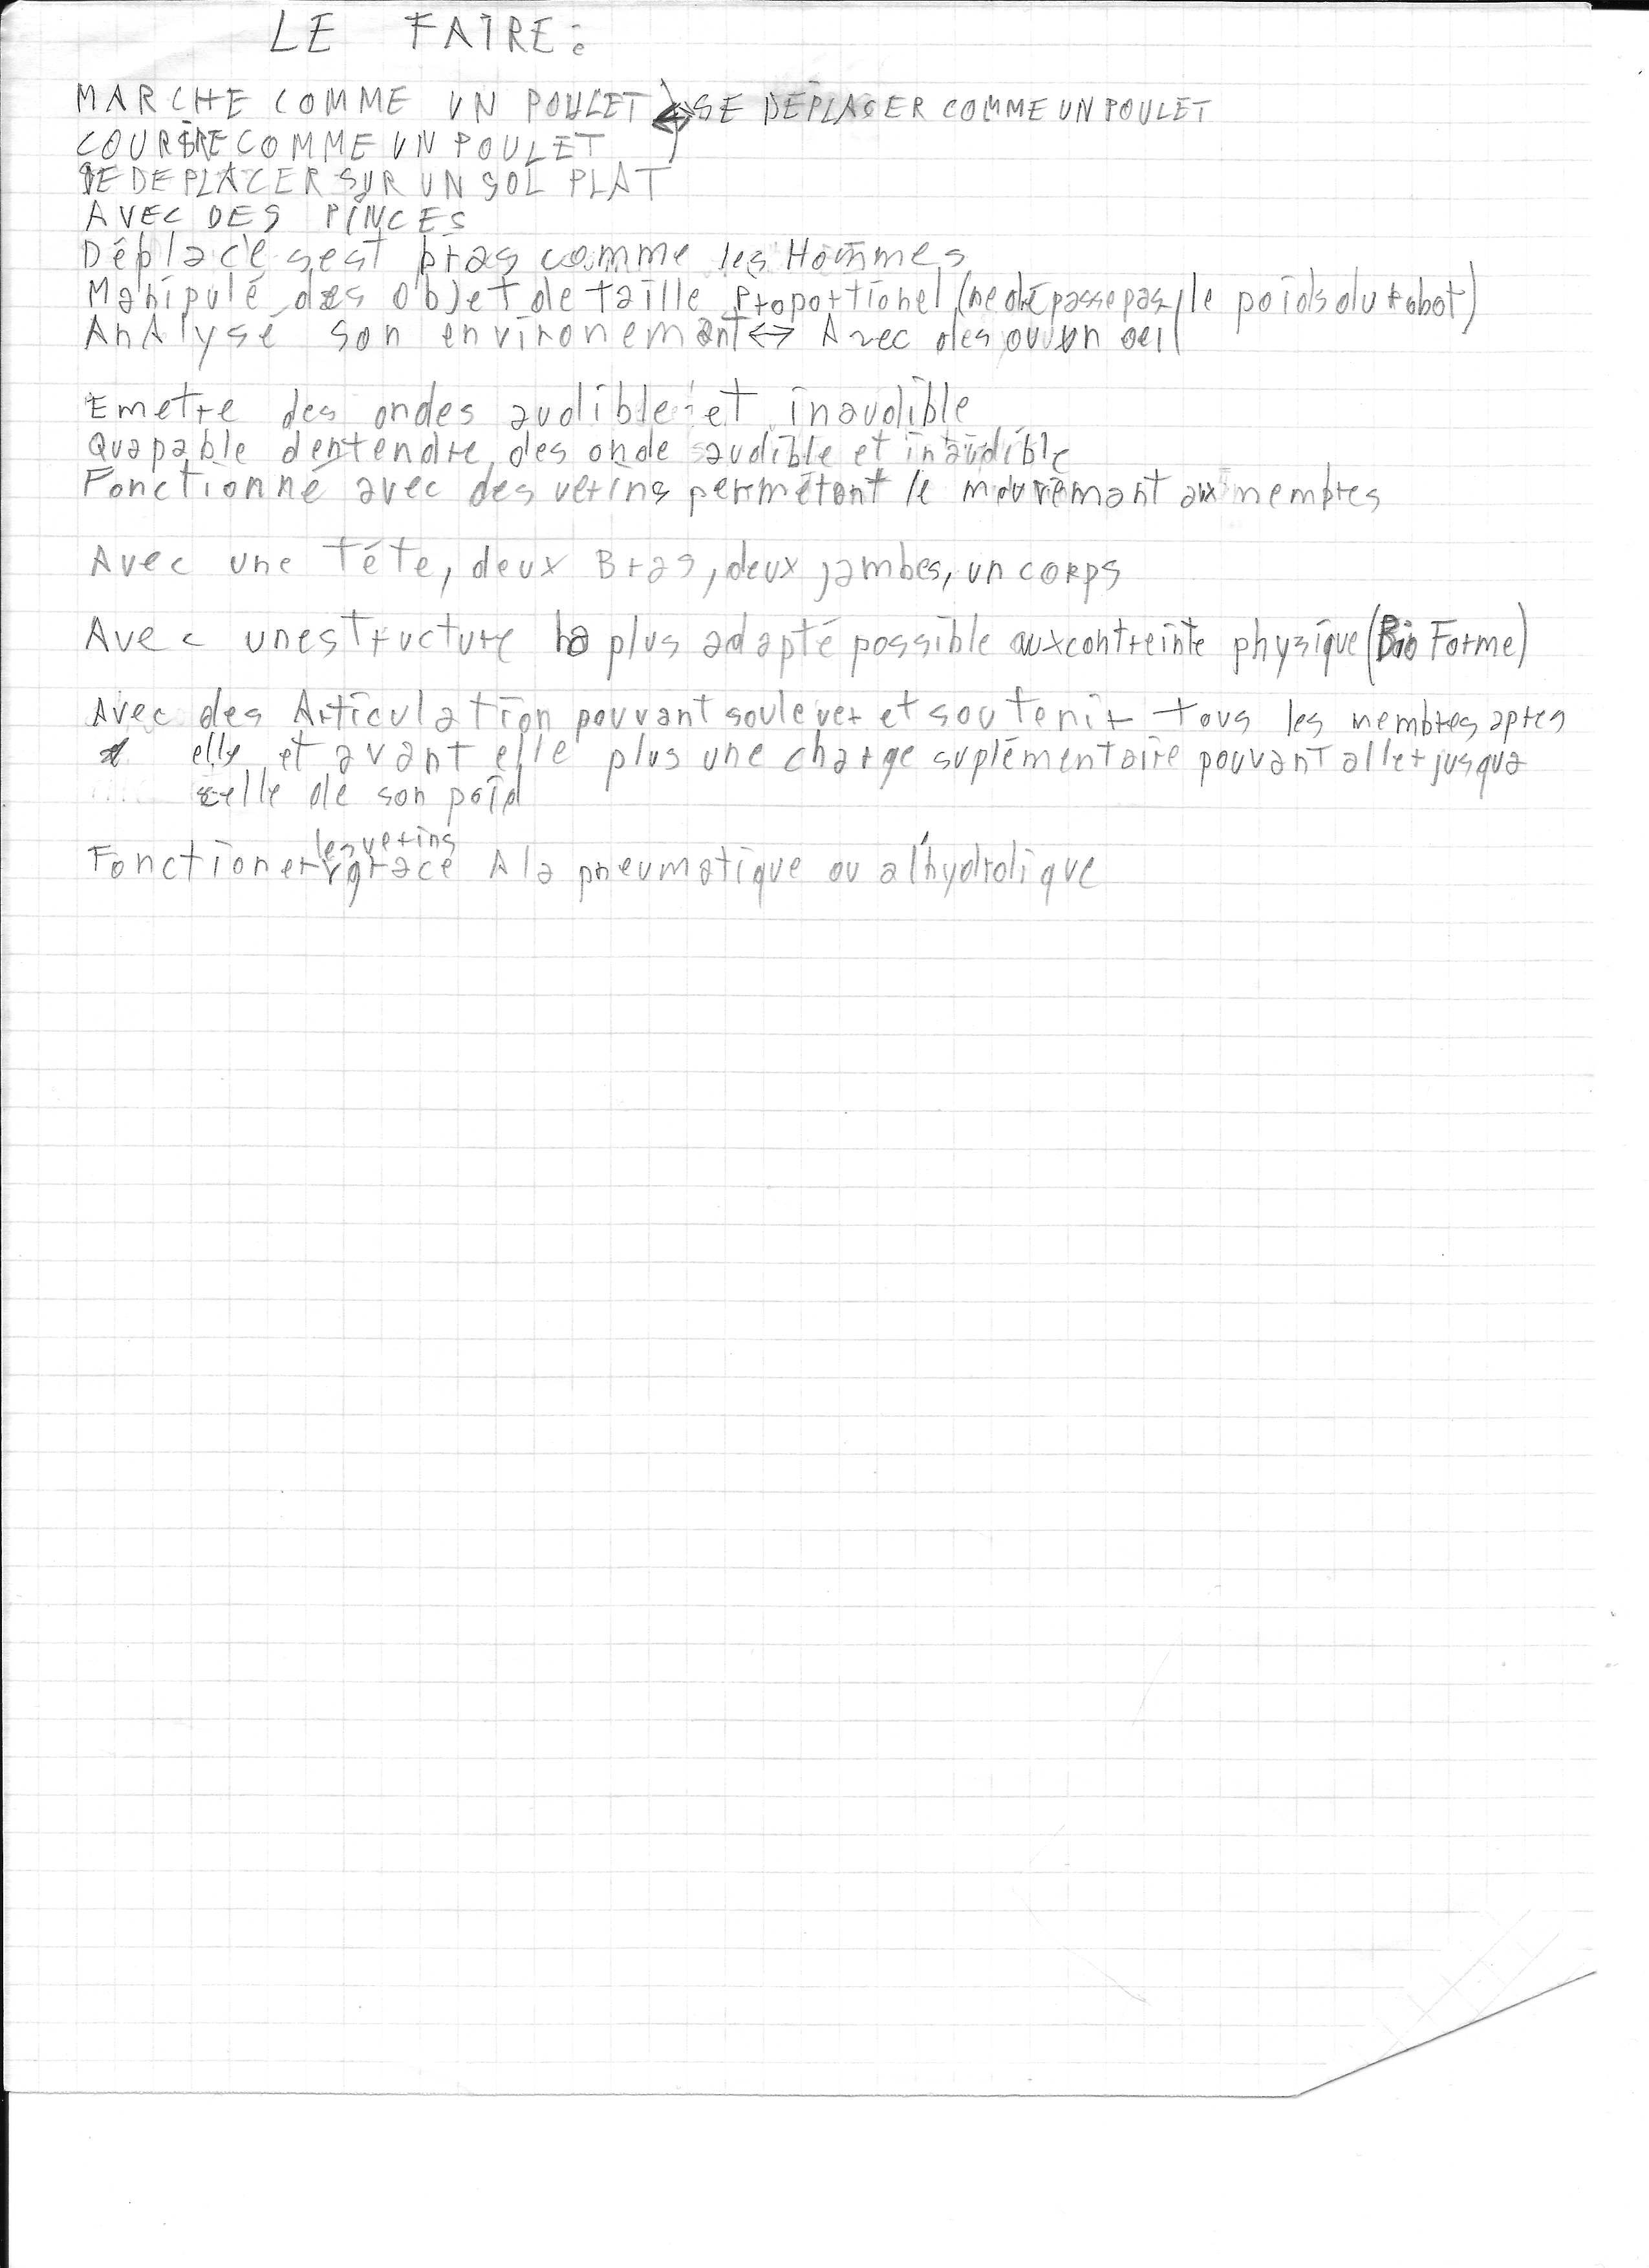 LE FAIRE :
MARCHE COMME UN POULET ↔ SE DÉPLACER COMME UN POULET
COURIRE COMME UN POULET
SE DEPLACER SUR UN SOL PLAT
AVEC DES PINCES
Déplacé sest bras comme les Hommes
Manipulé des objet de taille Proportionel (ne dépasse pas le poids du robot)
AnAlysé son environemant ↔ Avec des ou un oeil
Emetre des ondes audible et inaudible
Quapable dentendre des onde saudible et inaudible
Fonctionné avec des verins permétant le mouvemant aux membres
Avec une tête, deux Bras, deux jambes, un corps
Avec une structure la plus adapté possible aux contreinte physique (Bio Forme)
Avec des Articulation pouvant soulever et soutenir tous les membres apres
elle et avant elle plus une charge suplémentaire pouvant aller jusqua
celle de son poid
Fonctioner les verins grace A la pneumatique ou a l'hydrolique